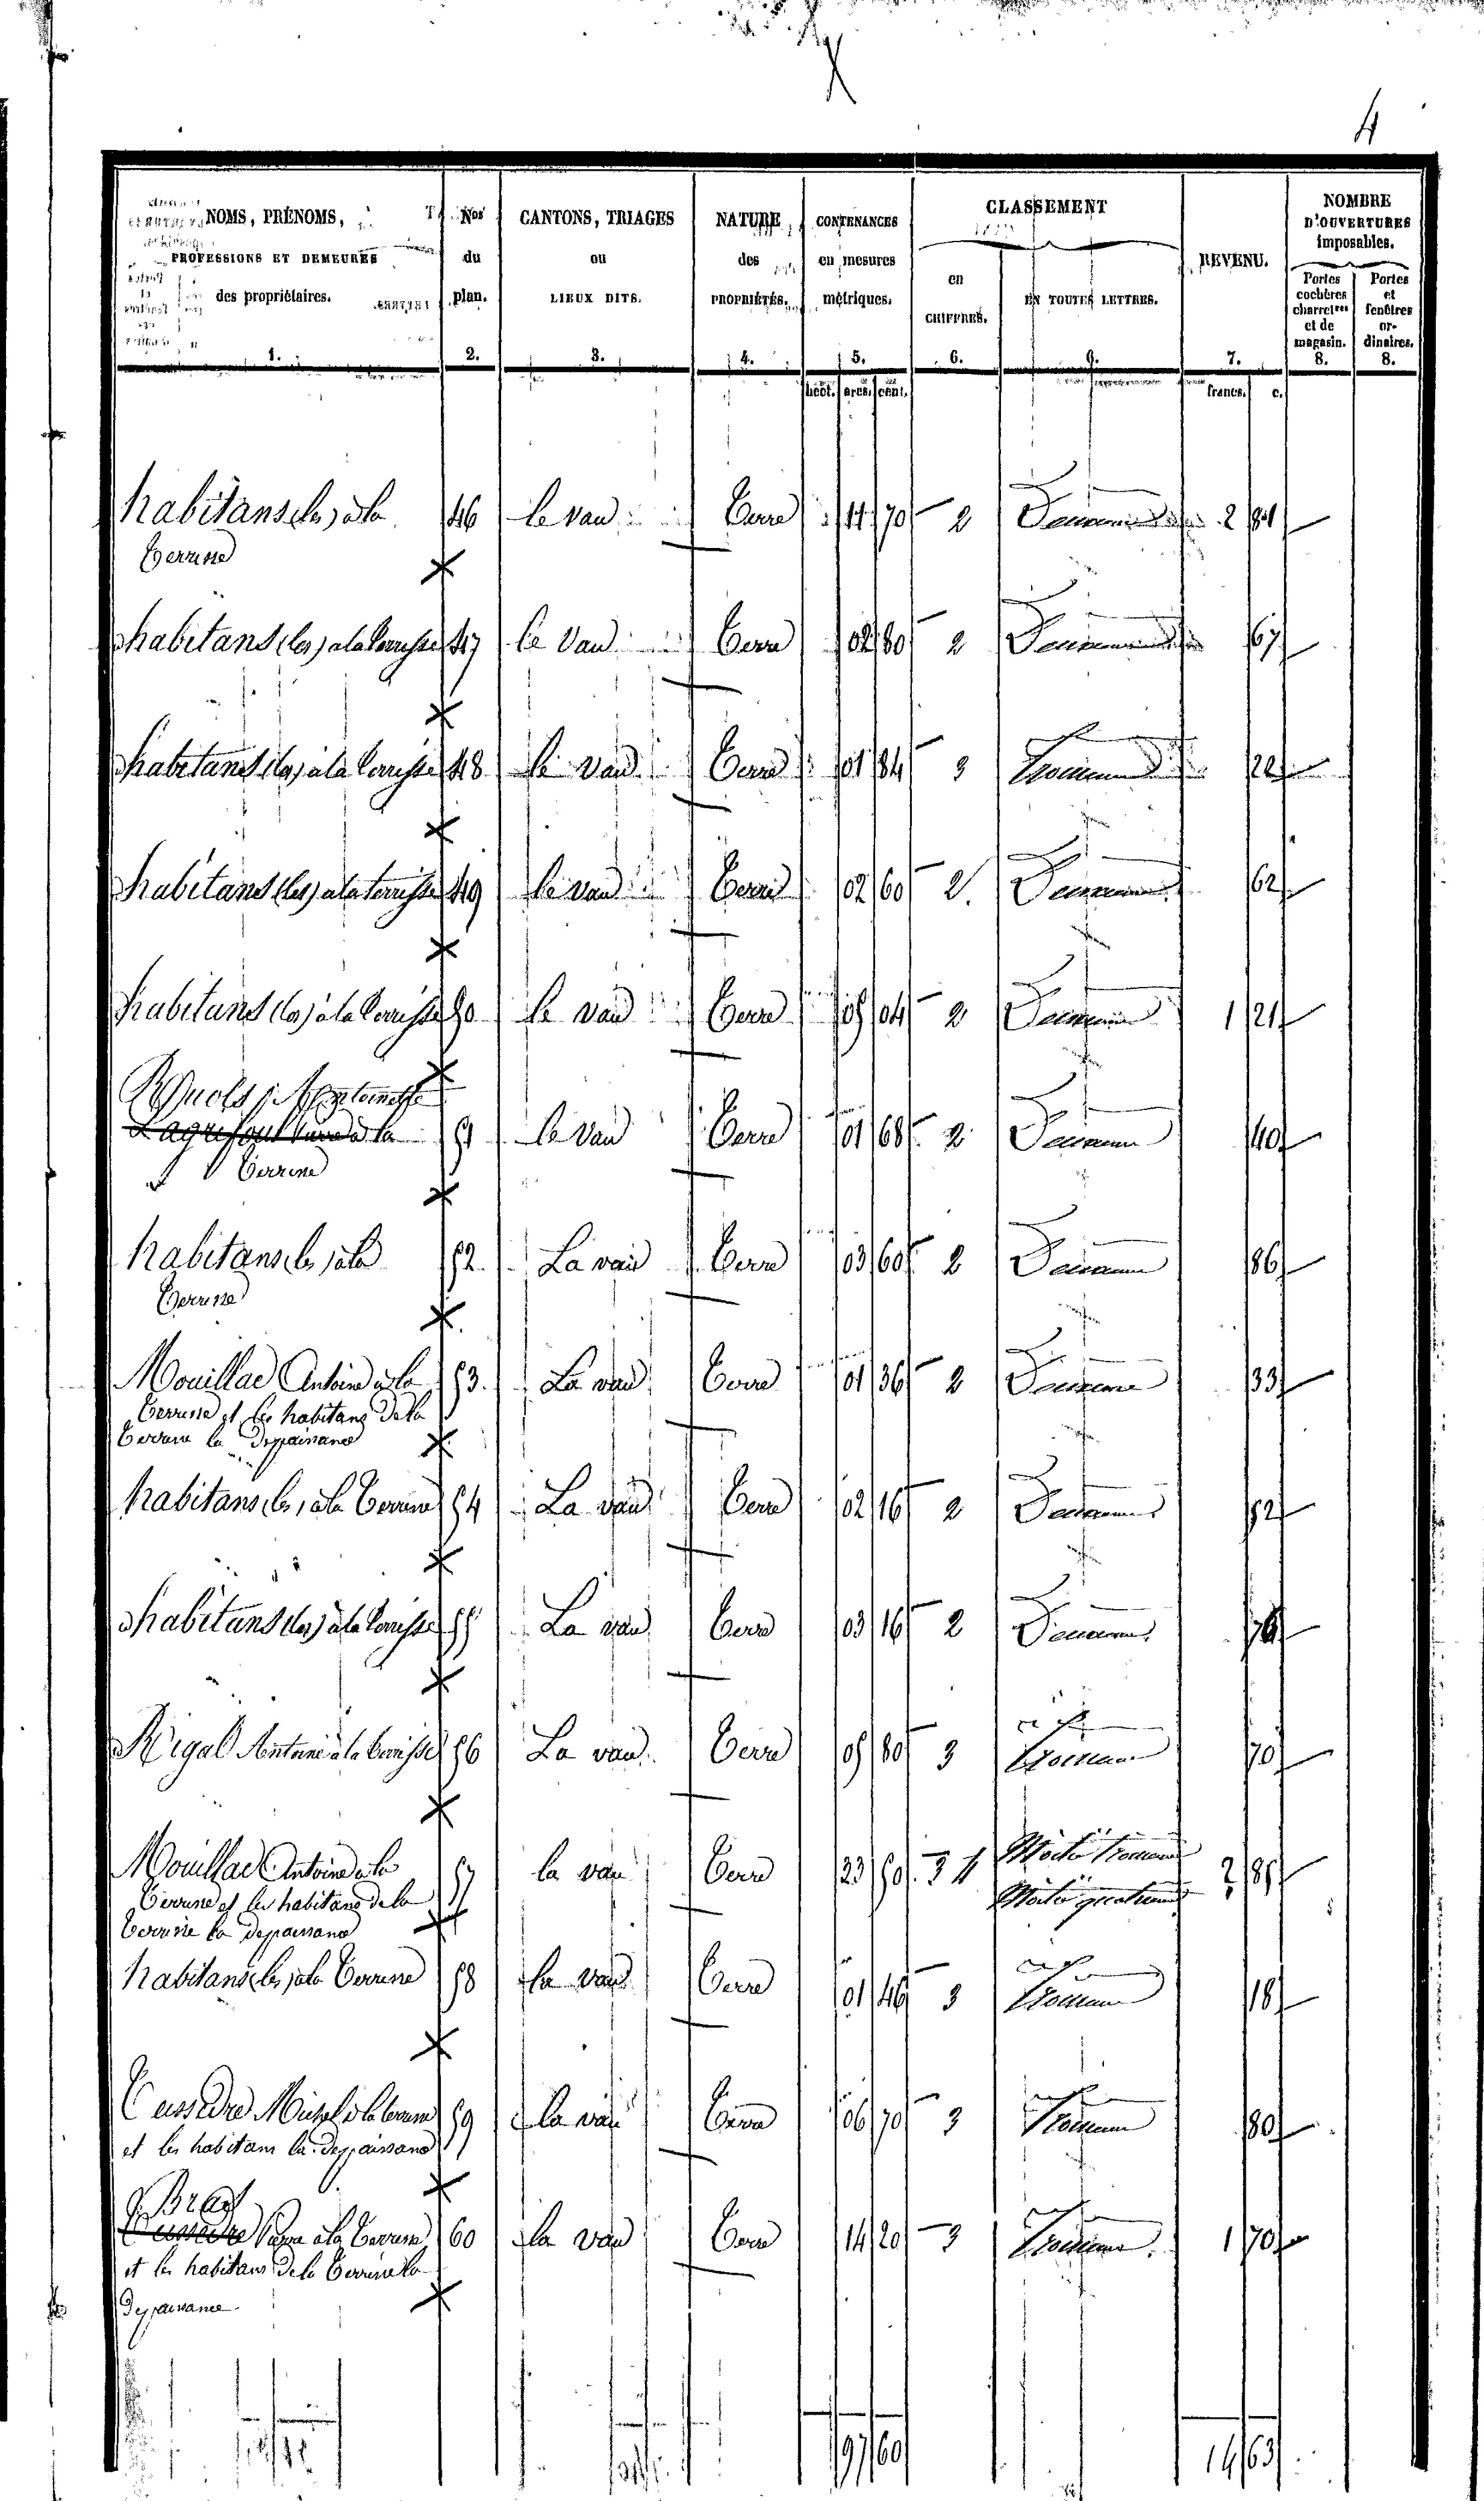 4
NOMS, PRÉNOMS,
PROFESSIONS ET DEMEURES
des propriétaires.
1.
Nos
du
plan.
2.
CANTONS, TRIAGES
ou
LIEUX DITS.
3.
NATURE
des
PROPRIÉTÉS.
4.
CONTENANCES
en mesures
métriques.
5.
CLASSEMENT
en
CHIFFRES.
6.
EN TOUTES LETTRES.
REVENU.
7.
NOMBRE
D'OUVERTURES
imposables.
Portes
cochères
charretres
et de
magasin.
8.
Portes
et
fenêtres
or-
dinaires.
8.
hect. ares. cent.
francs. c.
habitans (les) à la 46 le vau Terre 11 70 2 Deuxième 2 81
Terrisse
habitans (les) à la Terrisse 47 le Vau Terre 02 80 2 Deuxième 67
habitans (les) à la Terrisse 48 le Vau Terre 01 84 3 Troisième 22
habitans (les) à la Terrisse 49 le Vau Terre 02 60 2 Deuxième 62
habitans (les) à la Terrisse 50 le Vau Terre 05 04 2 Deuxième 1 21
à la 51 le Vau Terre 01 68 2 Deuxième 40
Terrisse
habitans (les) à la 52 La vau Terre 03 60 2 Deuxième 86
Terrisse
Mouillac Antoine à la 53 La vau Terre 01 36 2 Deuxième 33
Terrisse et les habitans de la
Terrisse la depaissance
habitans (les) à la Terrisse 54 La vau Terre 02 16 2 Deuxième 52
habitans (les) à la Terrisse 55 La vau Terre 03 16 2 Deuxième 76
Rigal Antoine à la Terrisse 56 La vau Terre 05 80 3 Troisième 70
Mouillac Antoine à la 57 la vau Terre 23 50 3 4 Moitié troisième 2 85
Moitié quatrième
Terrisse et les habitans de la
Terrisse la depaissance
habitans (les) à la Terrisse 58 la vau Terre 01 46 3 Troisième 18
Michel à la Terrisse 59 la vau Terre 06 70 3 Troisième 80
et les habitans la depaissance
Bras
à la Terrisse 60 la vau Terre 14 20 3 Troisième 1 70
et les habitans de la Terrisse la
depaissance
97 60
14 63